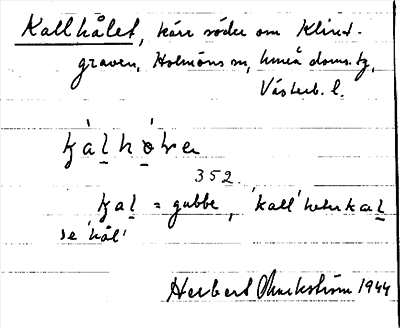 Kallhålet, kärr söder om Klint-
graven, Holmöns sn, Umeå doms. tg,
Västerb. l.
kàlhò̤ле
352.
kal = gubbe, 'kall' heter kal
se 'kål'
Herbert 1944